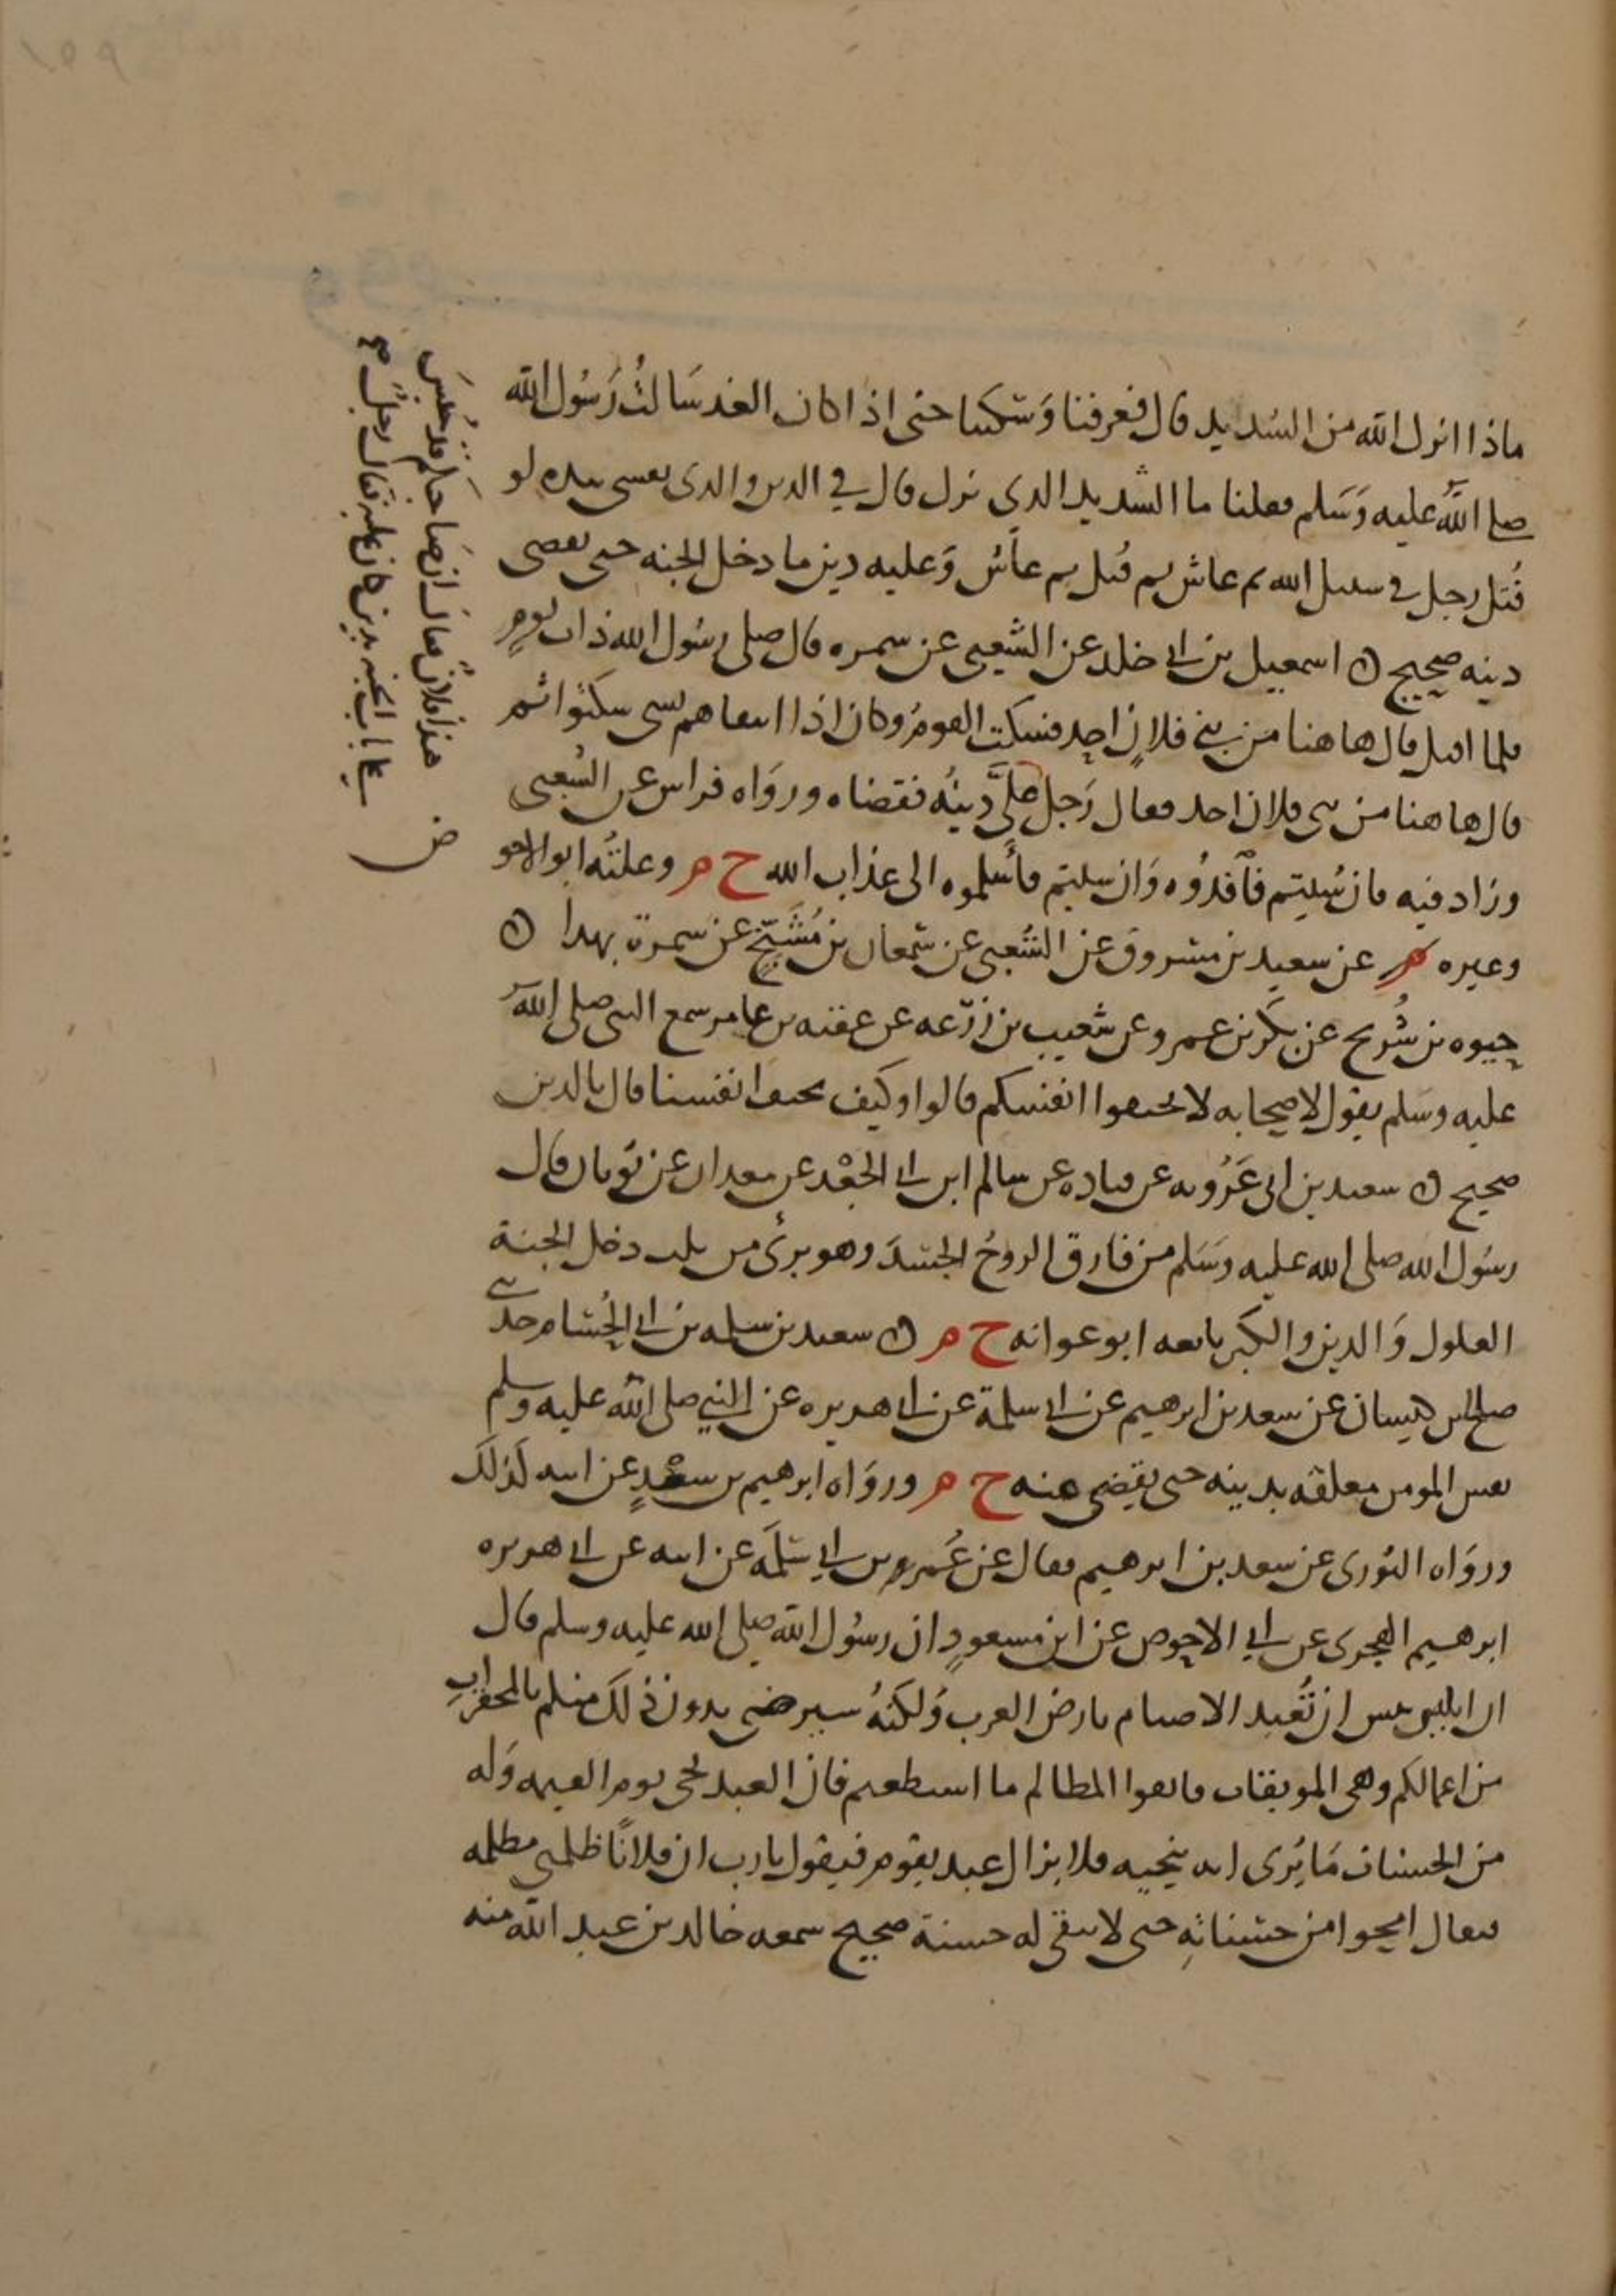 ماذا انزل الله من التشديد قال فعرفنا وَسَكتنا حتى اذا كان الغد سَالتُ رَسُول الله
صلى الله عليه وَسَلم فقلنا ما التشديد الذي نزل قال في الدين والذي نفسي بيده لو
قُتل رجل في سبيل الله ثم عاش ثم قُتل ثم عاش وَعليه دين ما دخل الجنه حتى يقضى
دينه صحيح ه اسمعيل بن ابي خلد عن الشعبي عن سمره قال صلى رسُول الله ذات يومٍ
فلما اقبل قال هاهنا من بني فلانٍ احد فسكت القوم وكان اذا ابتداهم بشي سكتوا ثم
قال هاهنا من بني فلان احد فقال رَجل عليَّ دينُه فقضاه وروَاه فراس عن الشعبي
وزاد فيه فان شيتم فافدُوه وَان شيتم فأسلموه الى عذاب الله خ م وعلتُه ابو الاحو
وغيره م عن سعيد بن مسروق عن الشعبي عن سمعان بن مُشَنَّج عن سمرة بهذا ه
حيوه بن شُريح عن بكر بن عمرو عن شعيب بن زرعه عن عقبه بن عامر سمع النبي صلى الله
عليه وسَلم يقول لاصحابه لا تخيفوا انفسكم قالوا وكيف نخيف انفسنا قال بالدين
صحيح ه سعيد بن ابي عَرُوبه عن قتاده عن سالم ابن ابي الجعْد عن معدان عن ثوبان قال
رسُول الله صلى الله عليه وَسَلم من فارق الروحُ الجسَدَ وهو برئ من ثلث دخل الجنة
الغلول وَالدين والكبر تابعه ابو عوانه خ م ه سعيد بن سلمه بن ابي الحُسَام حدثني
صالح بن كيسان عن سعد بن ابرهيم عن ابي سلمة عن ابي هريره عن النبي صلى الله عليه وسلم
نفس المومن معلقه بدينه حتى يقضى عنه خ م وروَاه ابرهيم بن سعْدٍ عن ابيه كَذلكَ
وروَاه الثوري عن سعد بن ابرهيم فقال عن عُمر بن ابي سَلَمَه عن ابيه عن ابي هريره
ابرهيم الهجري عن ابي الاحوص عن ابن مسعودٍ ان رسُول الله صلى الله عليه وسلم قال
ان ابليس يئس ان تُعبد الاصنام بارض العرب وَلكنهُ سيرضى بدون ذلكَ منكم بالمحقراتِ
من اعمالكم وهي الموبقات فاتقوا المظالم ما استطعتم فان العبد يجي يوم القيمه وَله
من الحسنات مَا يُرى انه ينجيه فلا يزال عبد يقوم فيقول يا رب ان فلانًا ظلمني مظلمه
فيقال امحوا من حسناتِه حتى لا يبقى له حسنة صحيح سمعه خالد بن عبد الله منه
هذا فلانٌ فقال ان صَاحبَكم قد حُبسَ
على باب الجنه بدين كان عليه فقال رجلٌ صح